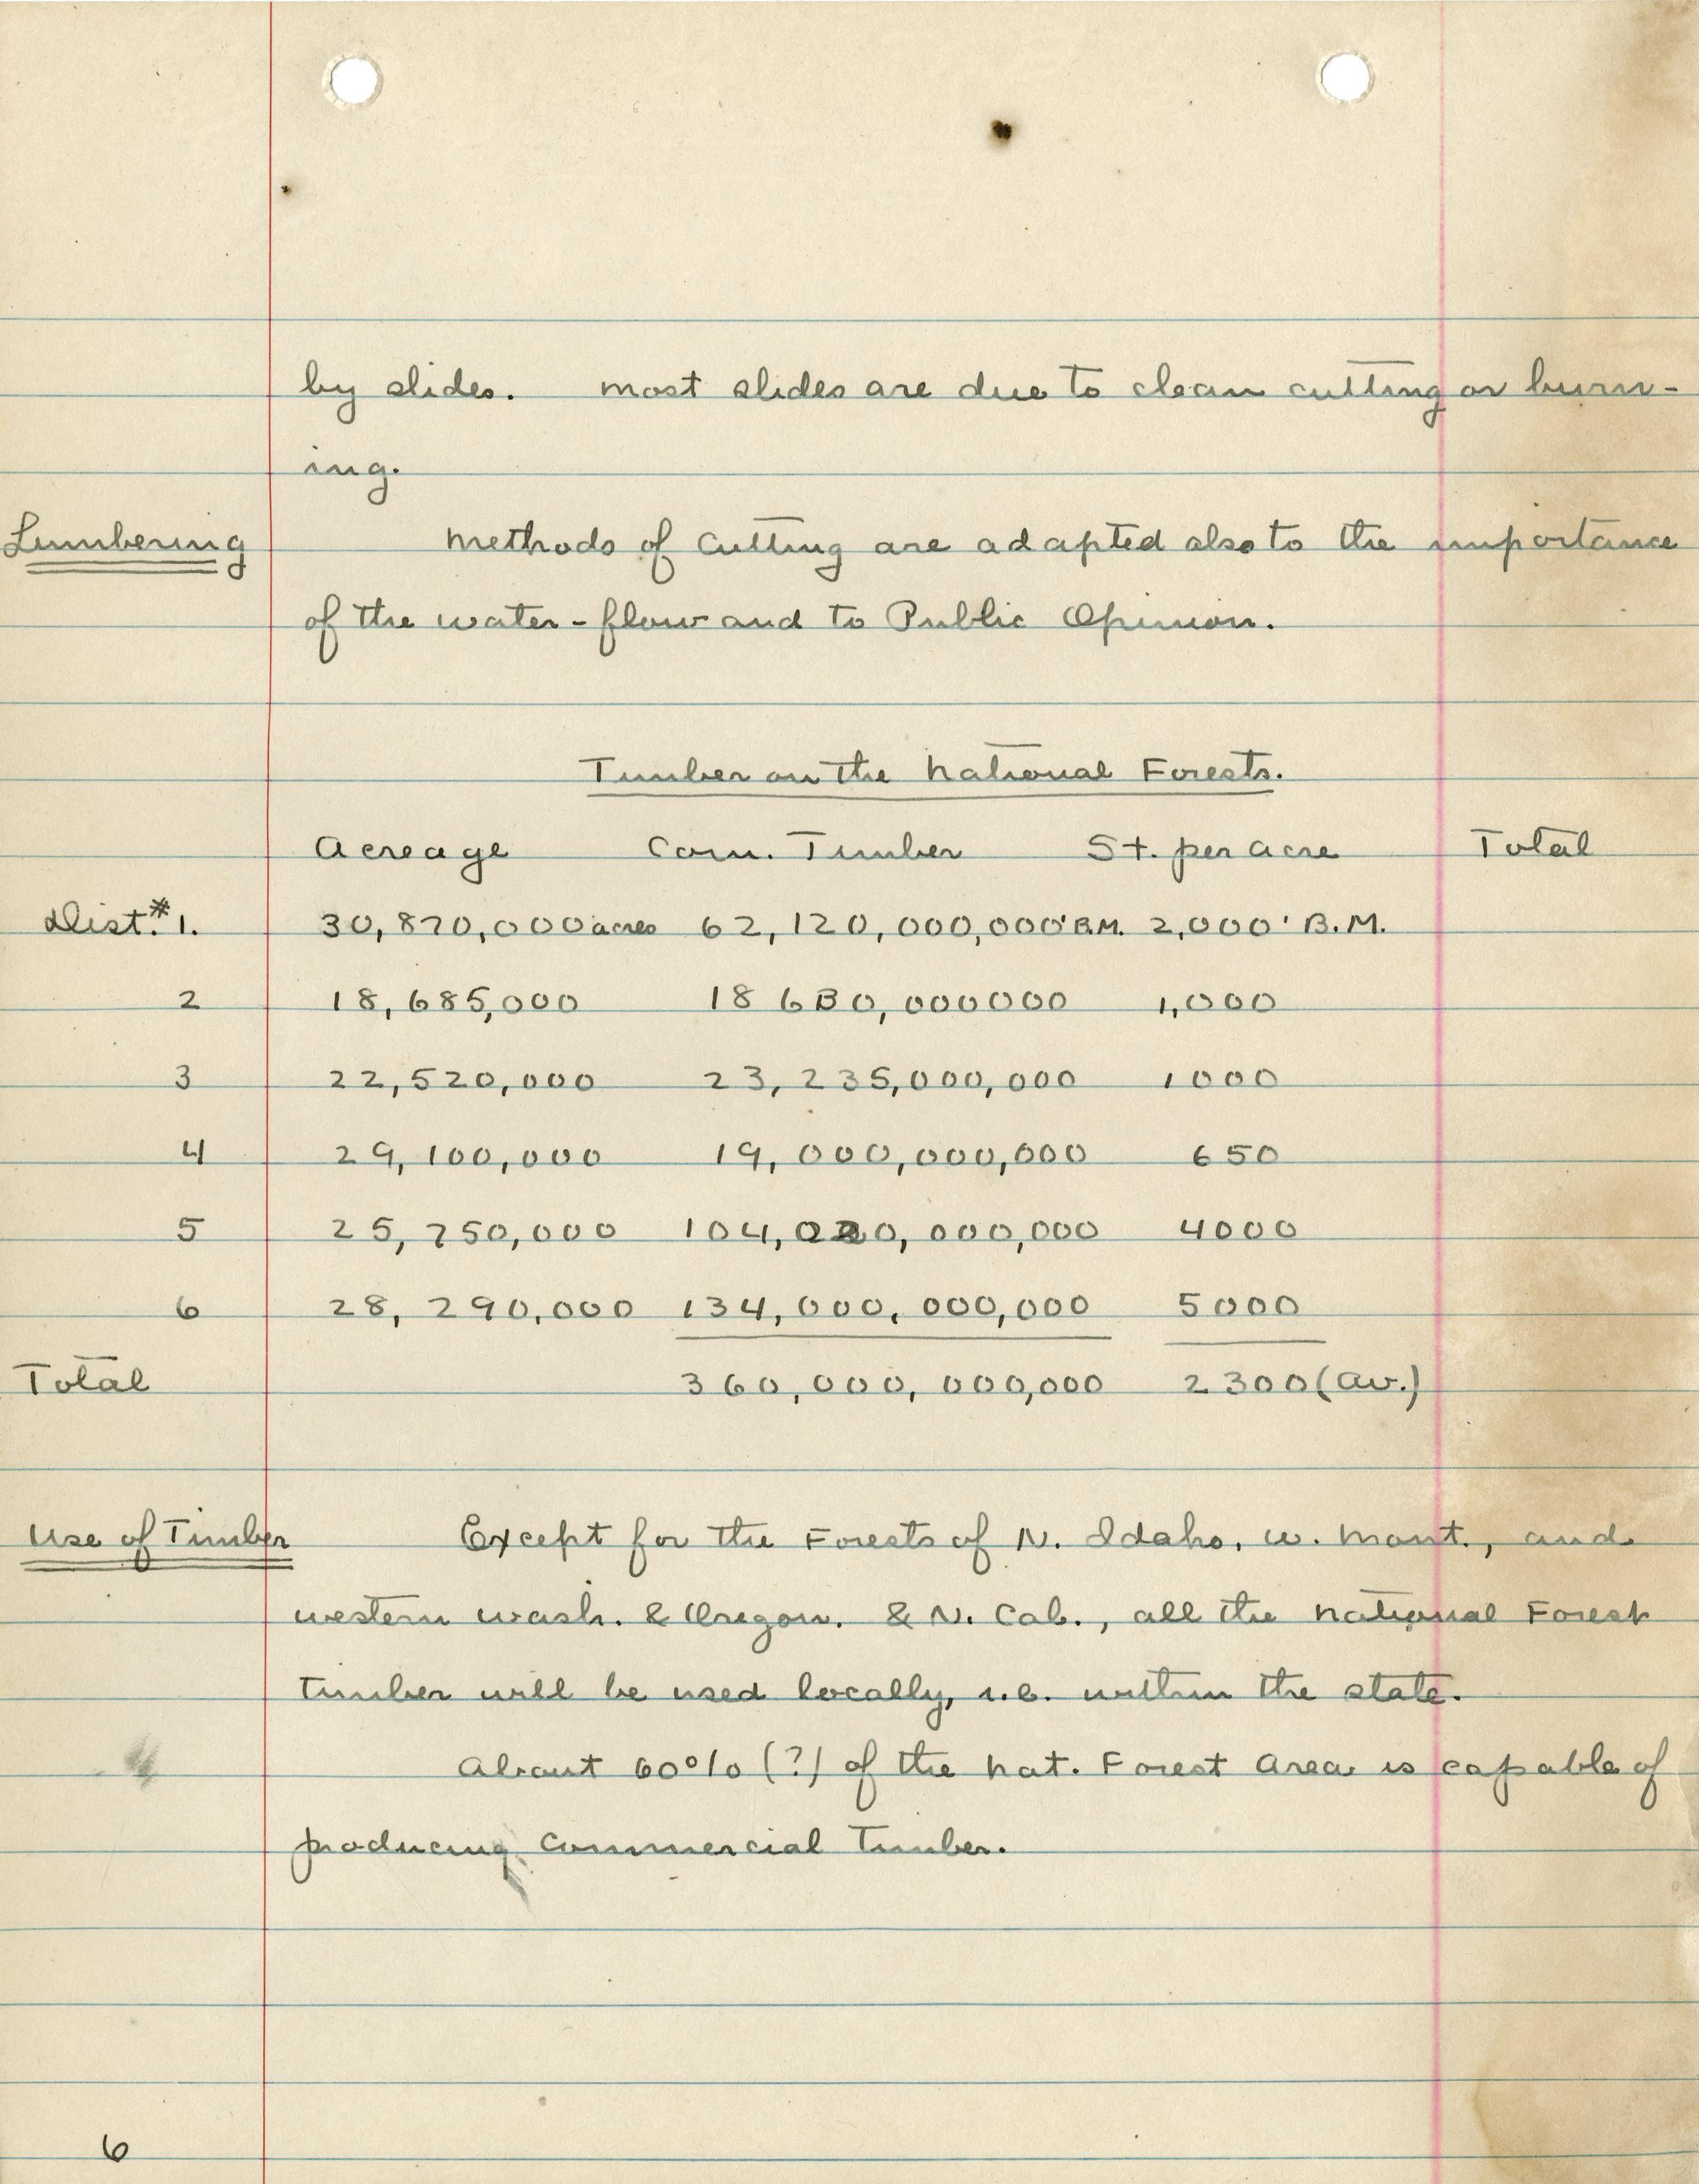 by slides. Most slides are due to clean cutting or burn-
ing.
Lumbering Methods of Cutting are adapted also to the importance
of the water-flow and to Public Opinion.
Timber on the National Forests.
Acreage Com. Timber St. per acre Total
Dist. #1. 30,870,000 acres 62,120,000,000' B.M. 2,000' B.M.
2 18,685,000 18 680,000000 1,000
3 22,520,000 23,235,000,000 1000
4 29,100,000 19,000,000,000 650
5 25,750,000 104,000,000 4000
6 28,290,000 134,000,000,000 5000
Total 360,000,000,000 2300 (Av.)
Use of Timber Except for the Forests of N. Idaho, W. Mont., and
western Wash. & Oregon. & N. Cal., all the National Forest
timber will be used locally, i.e. within the state.
About 60% (?) of the Nat. Forest Area is capable of
producing Commercial Timber.
6